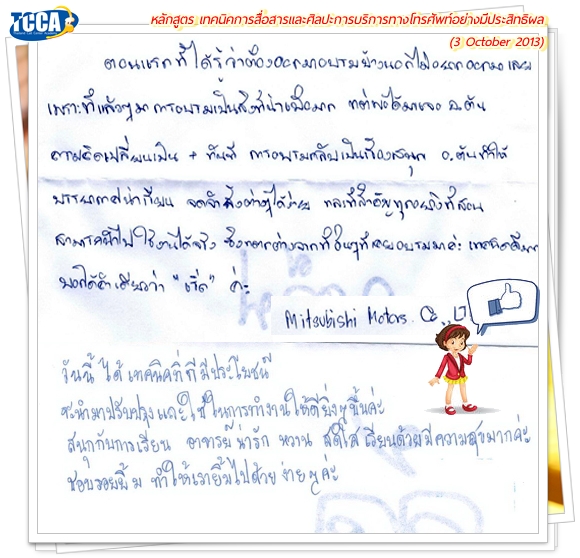 TCCA
Thailand Call Center Academy
หลักสูตร เทคนิคการสื่อสารและศิลปะการบริการทางโทรศัพท์อย่างมีประสิทธิผล
(3 October 2013)
ตอนแรกที่ได้รู้ว่าต้องออกมาอบรมข้างนอกก็ไม่อยากออกมาเลย
เพราะที่แล้วๆมา การอบรมเป็นสิ่งที่น่าเบื่อมาก แต่พอได้มาเจอ อ.ต้น
ความคิดเปลี่ยนเป็น + ทันที การอบรมกลับเป็นเรื่องสนุก อ.ต้นทำให้
บรรยากาศน่าเรียน จดจำสิ่งต่างๆได้ง่าย และที่สำคัญทุกอย่างที่สอน
สามารถนำไปใช้งานได้จริง ซึ่งแตกต่างจากที่อื่นๆที่เคยอบรมมาค่ะ
บอกได้คำเดียวว่า "เริ่ด" ค่ะ
Mitsubishi Motors
วันนี้ ได้ เทคนิคที่ดีมีประโยชน์
จะนำมาปรับปรุง และใช้ในการทำงานให้ดียิ่งๆขึ้นค่ะ
สนุกกับการเรียน อาจารย์น่ารัก หวาน สดใส เรียนด้วยมีความสุขมากค่ะ
ชอบรอยยิ้ม ทำให้เรายิ้มไปด้วย ง่ายๆค่ะ